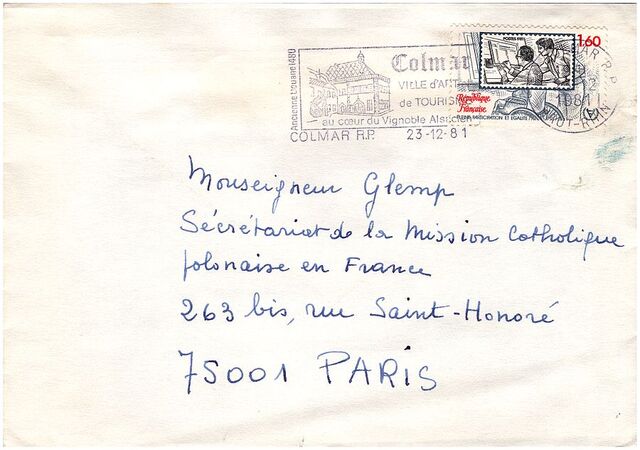 Ancienne Douane 1480
Colmar
VILLE d'ART
de TOURISME
au cœur du Vignoble Alsacien
COLMAR R.P. 23-12-81
POSTES 1981
1,60
République
Française
PLEINE PARTICIPATION ET ÉGALITÉ
COLMAR R.P.
1981
HAUT-RHIN
Monseigneur Glemp
Sécrétariat de la Mission Catholique
polonaise en France
263 bis, rue Saint-Honoré
75001 PARIS